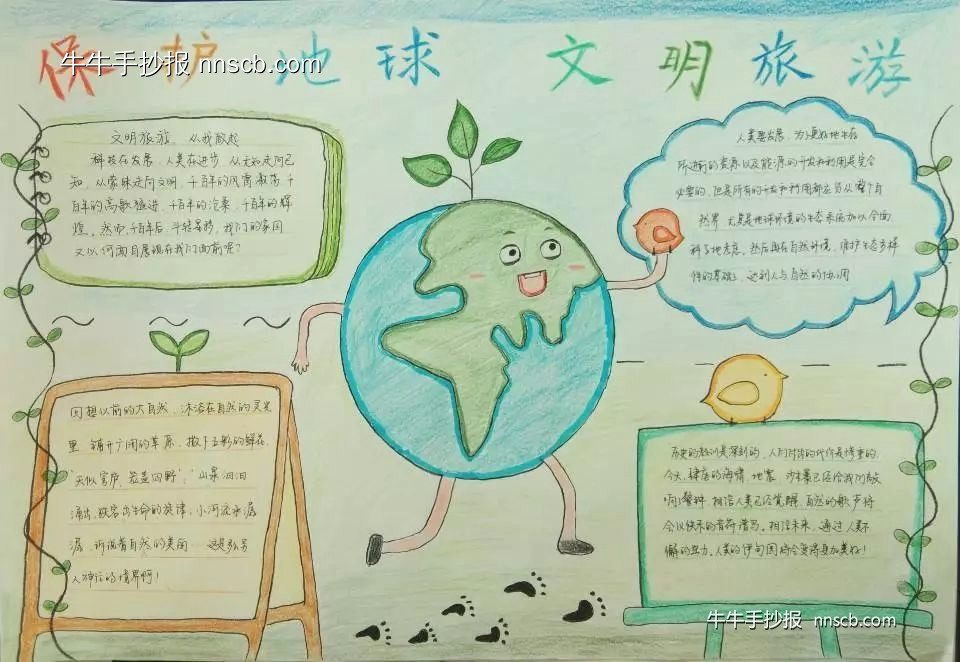 保护地球 文明旅游
牛牛手抄报 nnscb.com
文明旅游，从我做起
科技在发展，人类在进步，从无知走向已
知，从蒙昧走向文明，千百年的风霜激荡，千
百年的高歌猛进，千百年的沧桑，千百年的辉
煌。然而，千百年后，斗转星移，我们的家园
又以何面目展现在我们面前呢？
人类要发展，为了更好地生存
所进行的资源以及能源的开发和利用是完全
必要的，但是所有的开发和利用都必须从整个自
然界，尤其是地球环境的生态系统加以全面
科学地考虑，然后再在自然环境，维护生态多样
性的基础上，达到人与自然的协调
回想以前的大自然，沐浴在自然的灵光
里，铺开广阔的草原，撒下五彩的鲜花，
"天似穹庐，笼盖四野"，"山泉汩汩
涌出，跌宕出生命的旋律，小河流水潺
潺，诉说着自然的美丽……这是多么
人神往的境界啊！
历史的教训是深刻的，人们付出的代价是惨重的，
今天，肆虐的海啸，地震，沙尘暴已经给我们敲
响了警钟，相信人类已经觉醒，自然的歌声将
会以快乐的音符谱写。相信未来，通过人类不
懈的努力，人类的伊甸园将会变得更加美好！
牛牛手抄报 nnscb.com